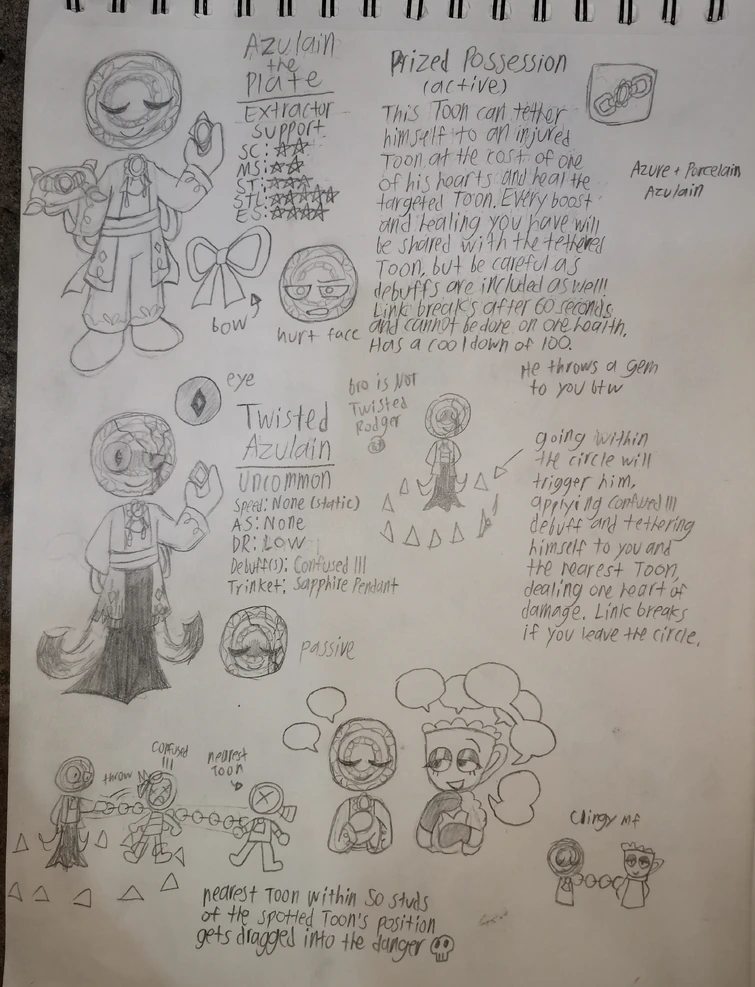 Azulain
the
Plate
Extractor
Support
SC: ☆☆
MS: ☆☆
ST: ☆☆☆
STL: ☆☆☆☆☆
ES: ☆☆☆☆
Prized Possession
(active)
This Toon can tether
himself to an injured
Toon at the cost of one
of his hearts and heal the
targeted Toon. Every boost
and healing you have will
be shared with the tethered
Toon, but be careful as
debuffs are included as well!
Link breaks after 60 seconds
and cannot be done on one health.
Has a cooldown of 100.
Azure + Porcelain
Azulain
bow
hurt face
He throws a gem
to you btw
eye
Twisted
Azulain
Uncommon
Speed: None (static)
AS: None
DR: LOW
Debuff(s): Confused III
Trinket: Sapphire Pendant
passive
bro is NOT
Twisted
Rodger
going within
the circle will
trigger him,
applying confused III
debuff and tethering
himself to you and
the nearest Toon,
dealing one heart of
damage. Link breaks
if you leave the circle.
throw
confused
III
nearest
Toon
nearest Toon within 50 studs
of the spotted Toon's position
gets dragged into the danger
Clingy mf